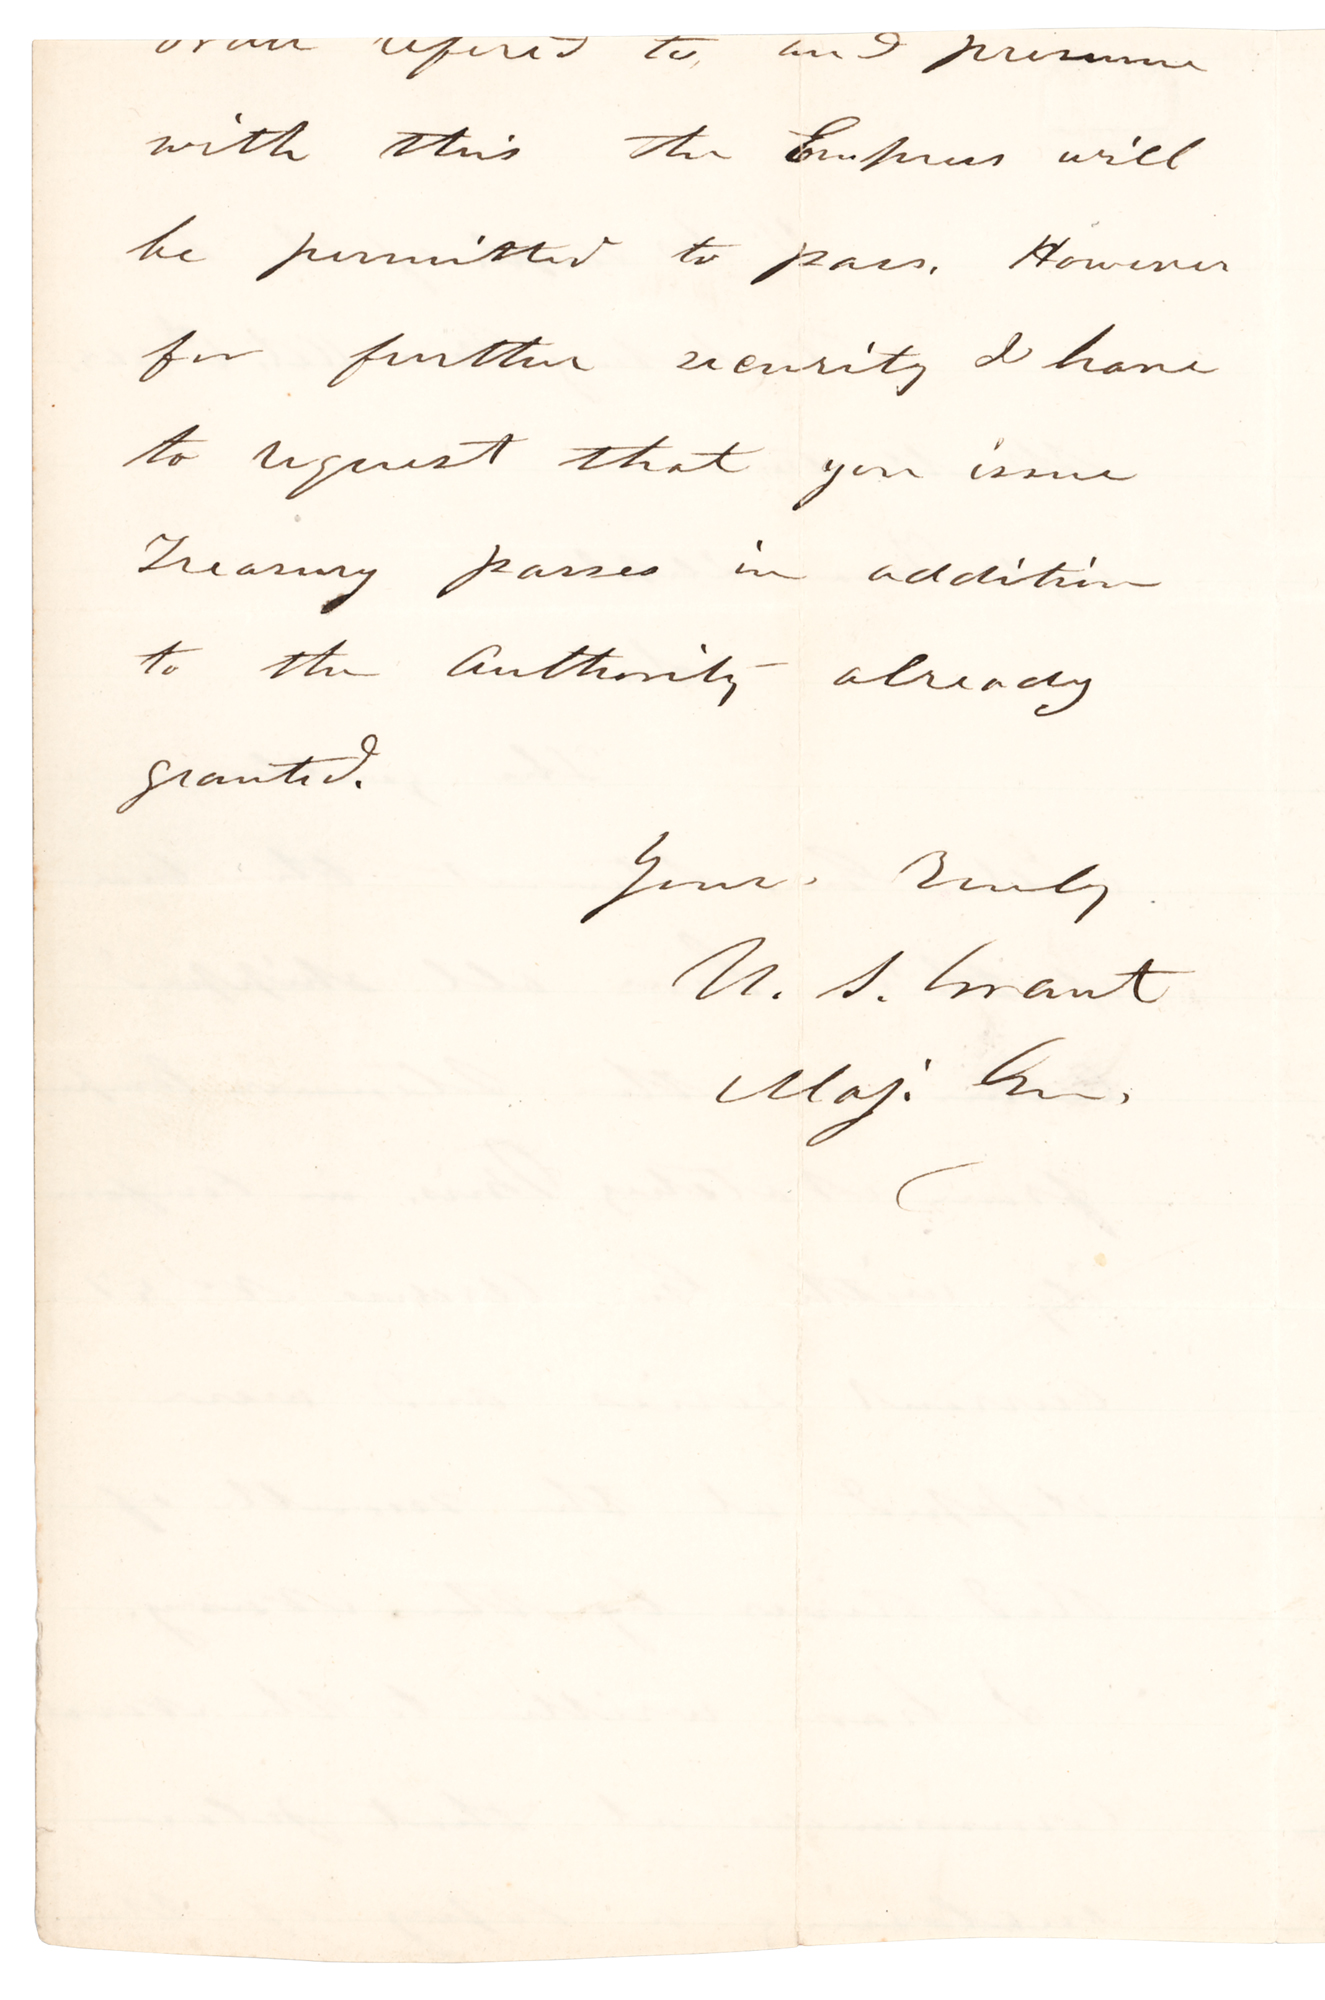 order refered to, and presume
with this the Empress will
be permitted to pass. However
for further security I have
to request that you issue
Treasury passes in addition
to the Authority already
granted.
Yours Truly
U. S. Grant
Maj. Gen.